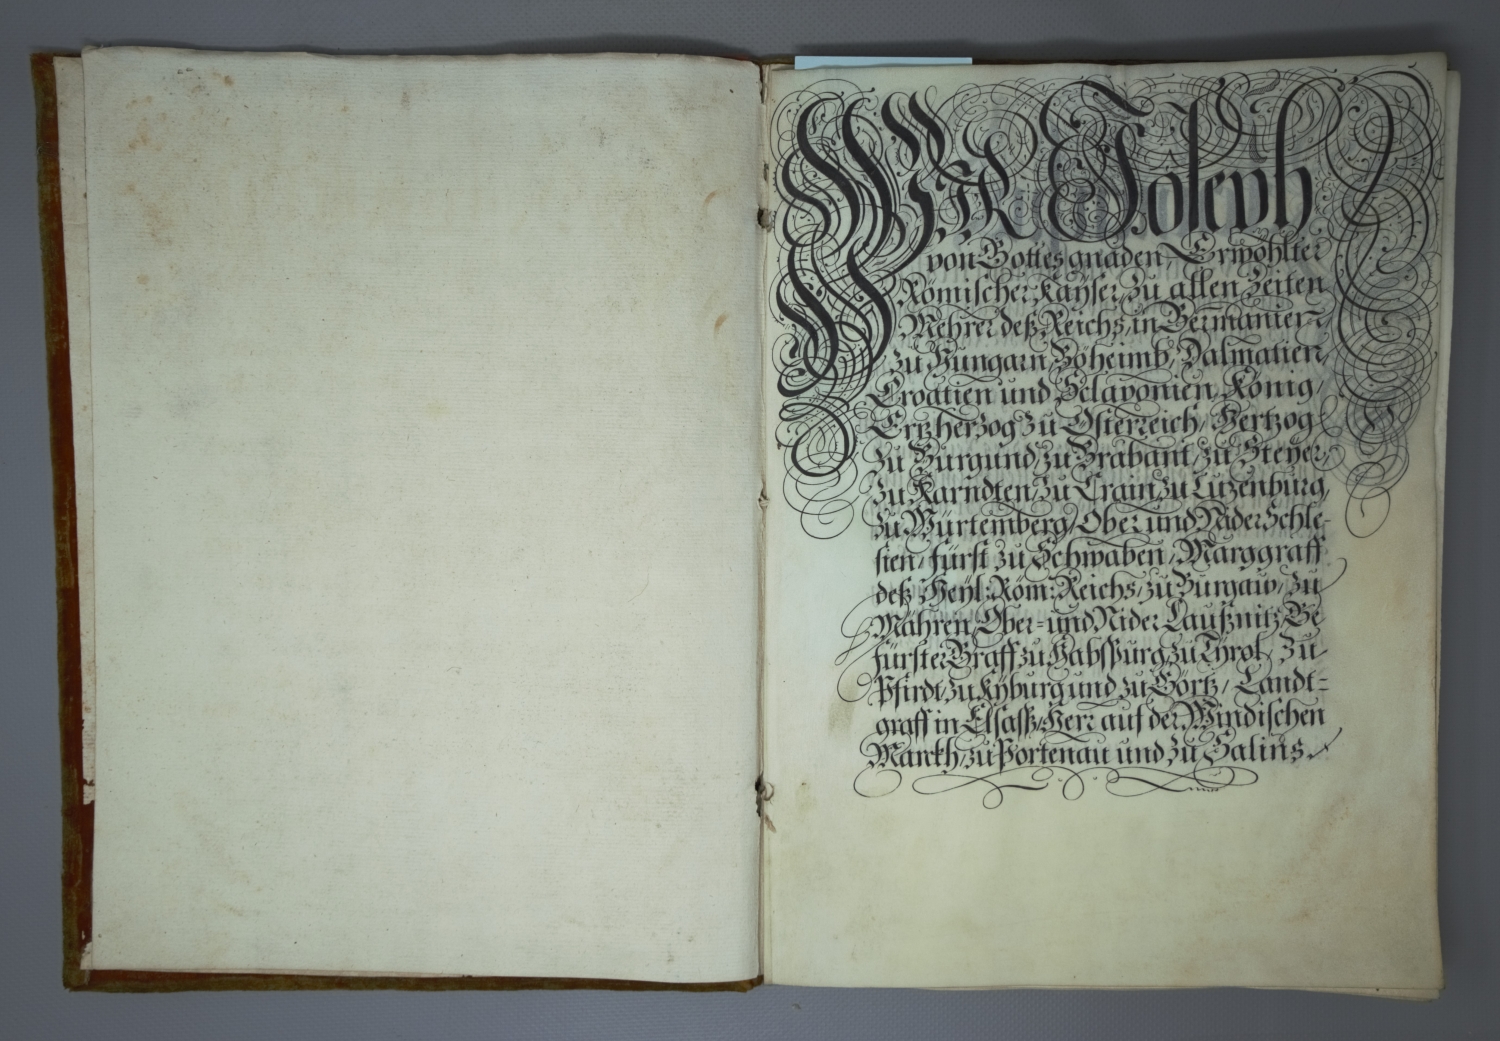 WIR Joseph
von Gottes gnaden Erwöhlter
Römischer Kaÿser, zu allen Zeiten
Mehrer deß Reichs, in Germanien
zu Hungarn Böheimb, Dalmatien
Croatien und Sclavonien, König,
Ertzherzog zu Österreich, Hertzog
zu Burgund, zu Brabant, zu Steyer,
zu Kärndten, zu Crain, zu Lutzenburg,
zu Würtemberg, Ober und Nider Schle-
sien, fürst zu Schwaben, Marggraff
deß Heyl: Röm: Reichs, zu Burgaw, zu
Mähren, Ober= und Nider Laußnitz, Ge
fürster Graff zu Habspurg, zu Tyrol, zu
Pfirdt, zu Kyburg und zu Görtz, Landt=
graff in Elsass, Herr auf der Windischen
Markh, zu Portenau und zu Salins.